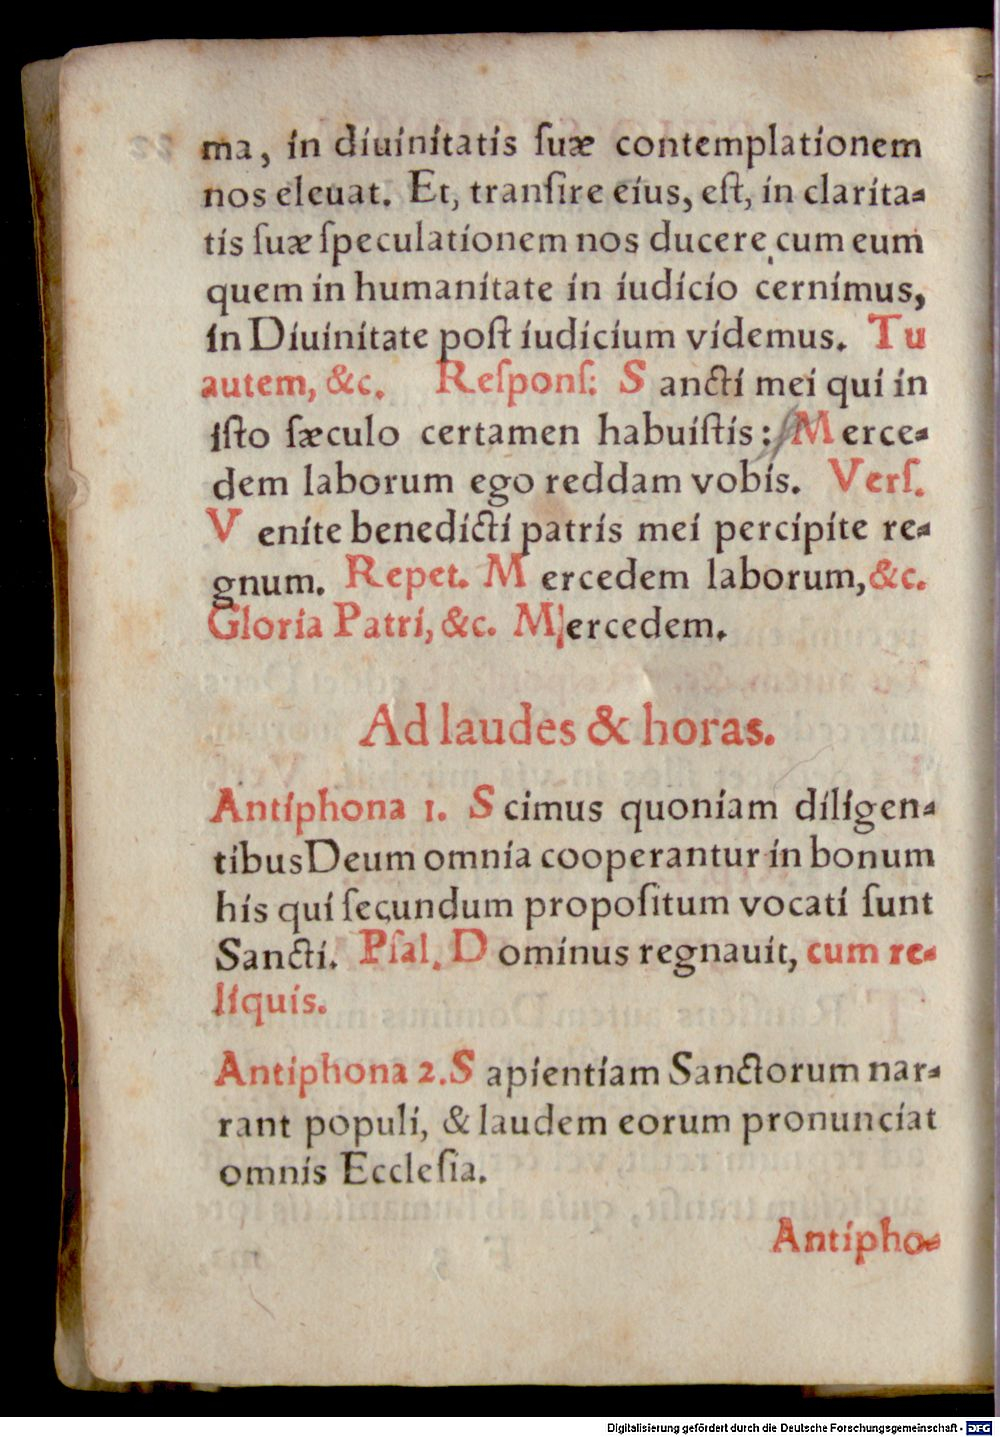 ma, in diuinitatis ſuæ contemplationem
nos eleuat. Et, tranſire eius, eſt, in clarita-
tis ſuæ ſpeculationem nos ducere, cum eum
quem in humanitate in iudicio cernimus,
in Diuinitate poſt iudicium videmus. Tu
autem, &c. Reſponſ: Sancti mei qui in
iſto ſæculo certamen habuiſtis: Merce-
dem laborum ego reddam vobis. Verſ.
Venite benedicti patris mei percipite re-
gnum. Repet. Mercedem laborum, &c.
Gloria Patri, &c. Mercedem.
Ad laudes & horas.
Antiphona 1. Scimus quoniam diligen-
tibus Deum omnia cooperantur in bonum
his qui ſecundum propoſitum vocati ſunt
Sancti. Pſal. Dominus regnauit, cum re-
liquis.
Antiphona 2. Sapientiam Sanctorum nar-
rant populi, & laudem eorum pronunciat
omnis Eccleſia.
Antipho-
Digitalisierung gefördert durch die Deutsche Forschungsgemeinschaft - DFG